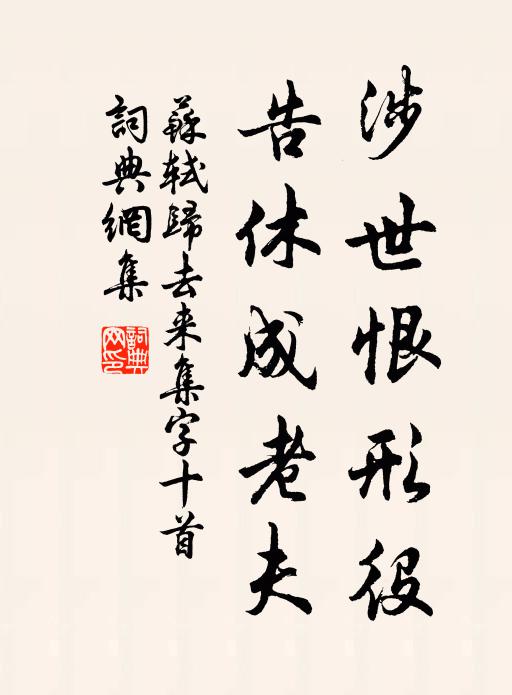 涉世恨形役
告休成老夫
蘇軾歸去来集字十首
詞典網集
詞典網印